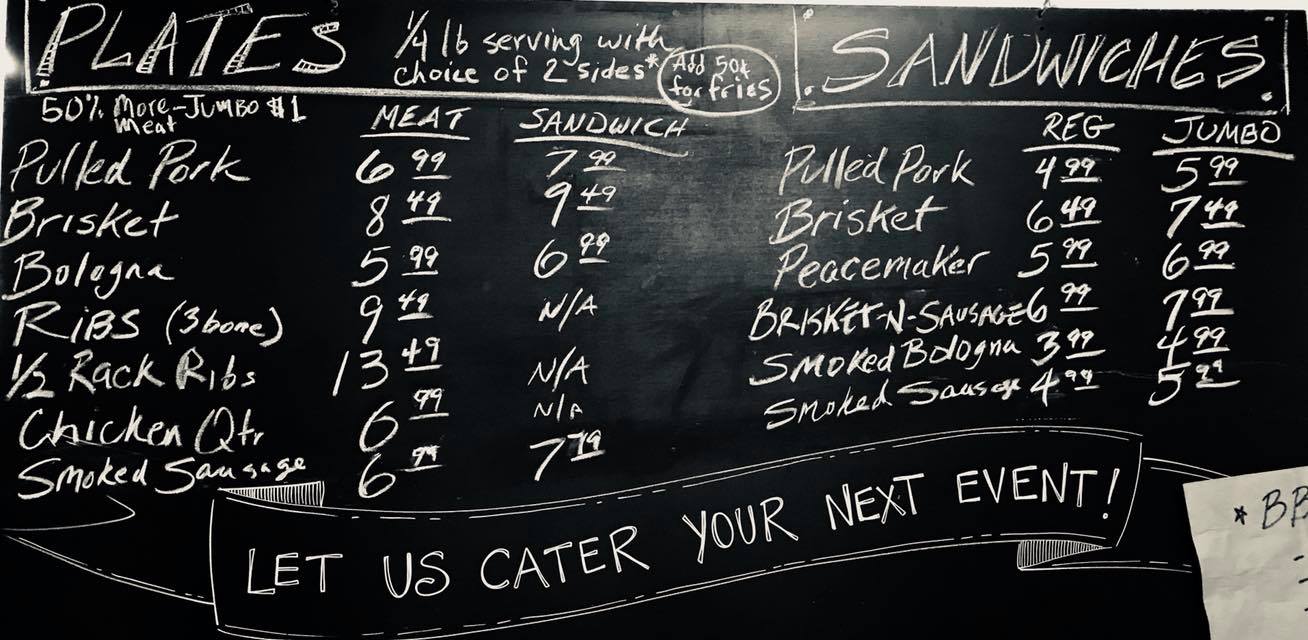 PLATES
1/4 lb serving with
choice of 2 sides*
Add 50¢
for fries
50% More-Jumbo $1
Meat
MEAT SANDWICH
Pulled Pork 6 99 7 99
Brisket 8 49 9 49
Bologna 5 99 6 99
RiBS (3bone) 9 49 N/A
1/2 Rack Ribs 13 49 N/A
Chicken Qtr 6 99 N/A
Smoked Sausage 6 99 7
SANDWICHES
REG JUMBO
Pulled Pork 4 99 5 99
Brisket 6 49 7 49
Peacemaker 5 99 6 99
BRISKET-N-SAUSAGE 6 99 7 99
Smoked Bologna 3 99 4 99
Smoked Sausage 4 99 5 99
LET US CATER YOUR NEXT EVENT!
* BB